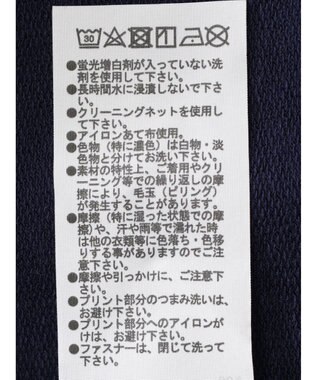 30
●蛍光増白剤が入っていない洗
剤を使用して下さい。
●長時間水に浸漬しないで下さ
い。
●クリーニングネットを使用し
て下さい。
●アイロンあて布使用。
●色物（特に濃色）は白物・淡
色物と分けてお洗い下さい。
●素材の特性上、ご着用やクリ
ーニング等での繰り返しの摩
擦により、毛玉（ピリング）
が発生することがあります。
●摩擦（特に湿った状態での摩
擦）や、汗や雨等で濡れた時
は他の衣類等に色落ち・色移
りする事がありますのでご注
意下さい。
●摩擦や引っかけに、ご注意下
さい。
●プリント部分のつまみ洗いは、
お避け下さい。
●プリント部分へのアイロンが
けは、お避け下さい。
●ファスナーは、閉じて洗って
下さい。